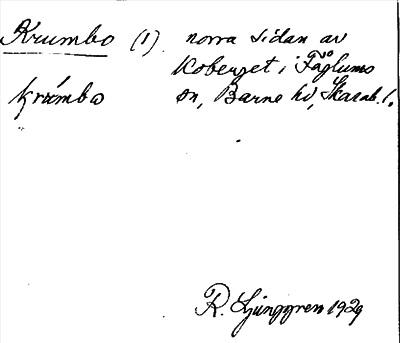 Krumbo (1) norra sidan av
Koberget i Fåglums
krúmbo sn, Barne hd, Skarab. l.
R. Ljunggren 1929